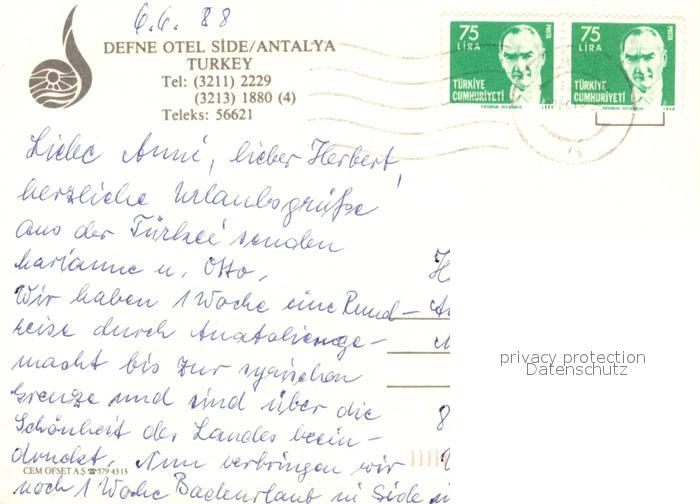 6.6. 88
DEFNE OTEL SİDE/ANTALYA
TURKEY
Tel: (3211) 2229
(3213) 1880 (4)
Teleks: 56621
75
LİRA
POSTA
TÜRKİYE
CUMHURİYETİ
75
LİRA
POSTA
TÜRKİYE
CUMHURİYETİ
Liebe Anni, lieber Herbert,
herzliche Urlaubsgrüße
aus der Türkei senden
Marianne u. Otto,
Wir haben 1 Woche eine Rund-
reise durch Anatolien ge-
macht bis zur syrischen
Grenze und sind über die
Schönheit des Landes beein-
druckt. Nun verbringen wir
noch 1 Woche Badeurlaub in Side
CEM OFSET A.Ş ☎ 579 43 13
privacy protection
Datenschutz